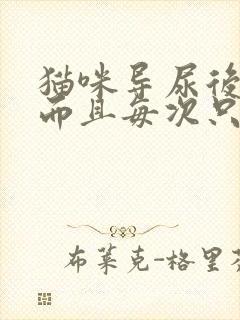 猫咪导尿後
而且每次只
布莱克-格里